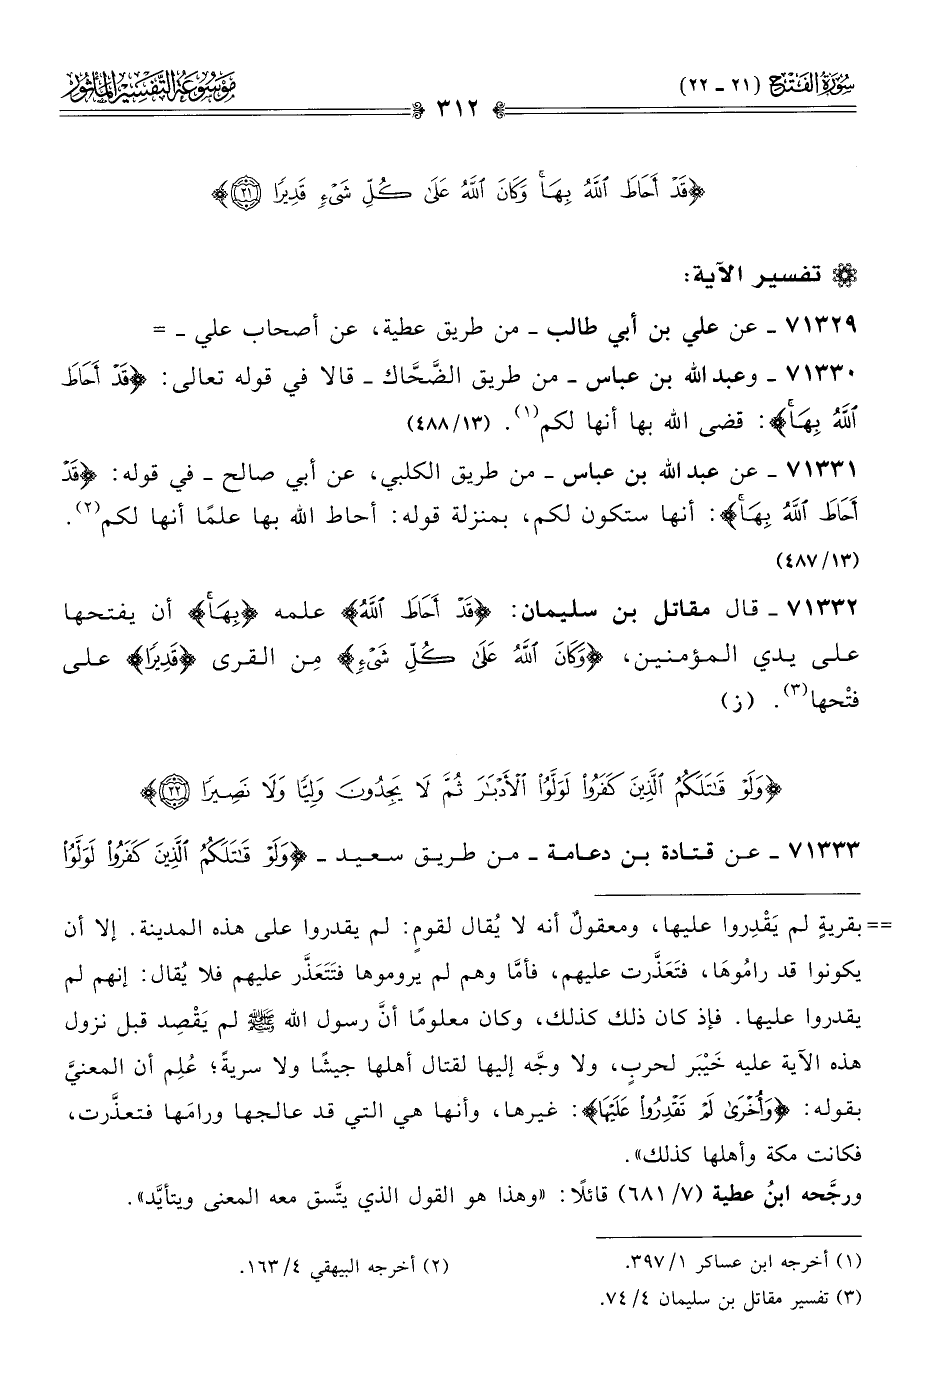 سُورَةُ الفَتْحِ (٢١ ـ ٢٢)
٣١٢
مَوْسُوعَةُ التَّفْسِيرِ المَأْثُورِ
﴿قَدْ أَحَاطَ ٱللَّهُ بِهَاۚ وَكَانَ ٱللَّهُ عَلَىٰ كُلِّ شَىْءٍ قَدِيرًا ٢١﴾
تفسير الآية:
٧١٣٢٩ ـ عن علي بن أبي طالب ـ من طريق عطية، عن أصحاب علي ـ =
٧١٣٣٠ ـ وعبد الله بن عباس ـ من طريق الضَّحَّاك ـ قالا في قوله تعالى: ﴿قَدْ أَحَاطَ
ٱللَّهُ بِهَاۚ﴾: قضى الله بها أنها لكم(١). (٤٨٨/١٣)
٧١٣٣١ ـ عن عبد الله بن عباس ـ من طريق الكلبي، عن أبي صالح ـ في قوله: ﴿قَدْ
أَحَاطَ ٱللَّهُ بِهَاۚ﴾: أنها ستكون لكم، بمنزلة قوله: أحاط الله بها علمًا أنها لكم(٢).
(٤٨٧/١٣)
٧١٣٣٢ ـ قال مقاتل بن سليمان: ﴿قَدْ أَحَاطَ ٱللَّهُ﴾ علمه ﴿بِهَاۚ﴾ أن يفتحها
على يدي المؤمنين، ﴿وَكَانَ ٱللَّهُ عَلَىٰ كُلِّ شَىْءٍ﴾ مِن القرى ﴿قَدِيرًا﴾ على
فتْحها(٣). (ز)
﴿وَلَوْ قَٰتَلَكُمُ ٱلَّذِينَ كَفَرُوا۟ لَوَلَّوُا۟ ٱلْأَدْبَٰرَ ثُمَّ لَا يَجِدُونَ وَلِيًّا وَلَا نَصِيرًا ٢٢﴾
٧١٣٣٣ ـ عن قتادة بن دعامة ـ من طريق سعيد ـ ﴿وَلَوْ قَٰتَلَكُمُ ٱلَّذِينَ كَفَرُوا۟ لَوَلَّوُا۟
== بقريةٍ لم يَقْدِروا عليها، ومعقولٌ أنه لا يُقال لقومٍ: لم يقدروا على هذه المدينة. إلا أن
يكونوا قد رامُوهَا، فتَعَذَّرت عليهم، فأمَّا وهم لم يروموها فتَتَعَذَّر عليهم فلا يُقال: إنهم لم
يقدروا عليها. فإذ كان ذلك كذلك، وكان معلومًا أنَّ رسول الله ﷺ لم يَقْصِد قبل نزول
هذه الآية عليه خَيْبَر لحربٍ، ولا وجَّه إليها لقتال أهلها جيشًا ولا سريةً؛ عُلِم أن المعنيَّ
بقوله: ﴿وَأُخْرَىٰ لَمْ تَقْدِرُوا۟ عَلَيْهَا﴾: غيرها، وأنها هي التي قد عالجها ورامَها فتعذَّرت،
فكانت مكة وأهلها كذلك».
ورجَّحه ابنُ عطية (٦٨١/٧) قائلًا: «وهذا هو القول الذي يتَّسق معه المعنى ويتأيَّد».
(١) أخرجه ابن عساكر ٣٩٧/١.
(٢) أخرجه البيهقي ١٦٣/٤.
(٣) تفسير مقاتل بن سليمان ٧٤/٤.